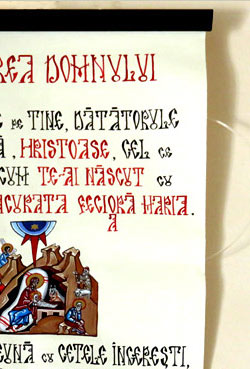 REA DOMNULUI
E DE TINE, DĂTĂTORULE
Ă, HRISTOASE, CEL CE
CUM TE-AI NĂSCUT CU
ACURATA FECIOARĂ MARIA.
CU CETELE ÎNGEREŞTI,